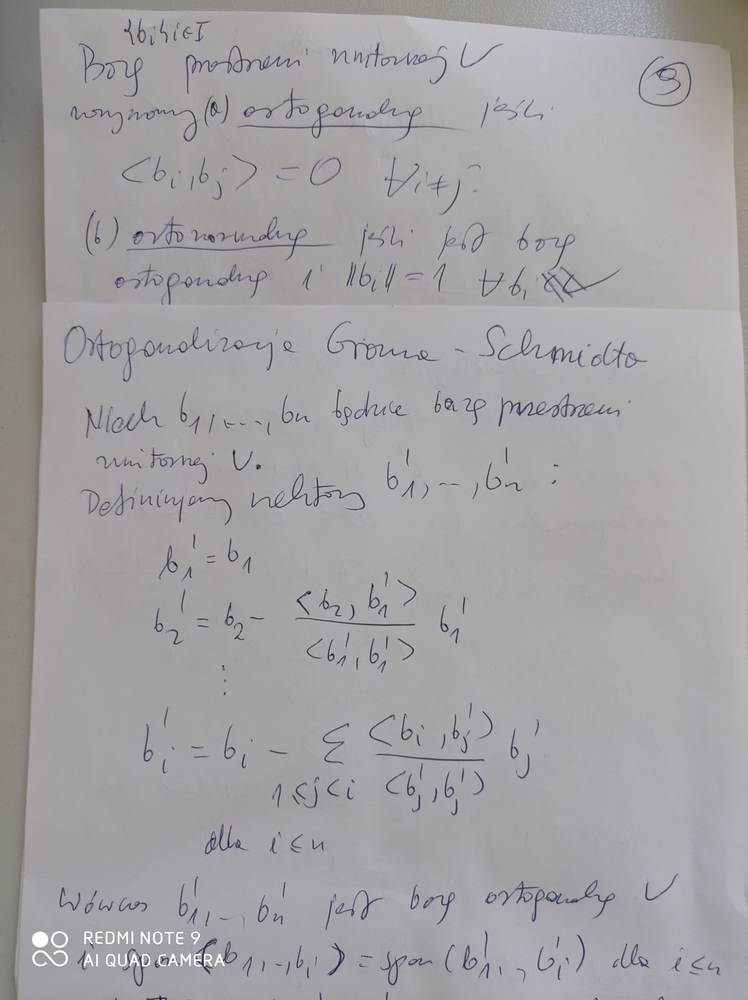 {bi}i∈I
Bazę przestrzeni unitarnej V
nazywamy (a) ortogonalną jeśli
<bi, bj> = 0 ∀i≠j
(b) ortonormalną jeśli jest bazą
ortogonalną i ||bi|| = 1 ∀bi
9
Ortogonalizacja Grama-Schmidta
Niech b1, ..., bn będzie bazą przestrzeni
unitarnej V.
Definiujemy wektory b1', ..., bn' :
b1' = b1
b2' = b2 - <b2, b1'> / <b1', b1'> b1'
⋮
bi' = bi - Σ 1≤j<i <bi, bj'> / <bj', bj'> bj'
dla i ≤ n
Wówczas b1', ..., bn' jest bazą ortogonalną V
i span(b1, ..., bi) = span(b1', ..., bi') dla i ≤ n
REDMI NOTE 9
AI QUAD CAMERA